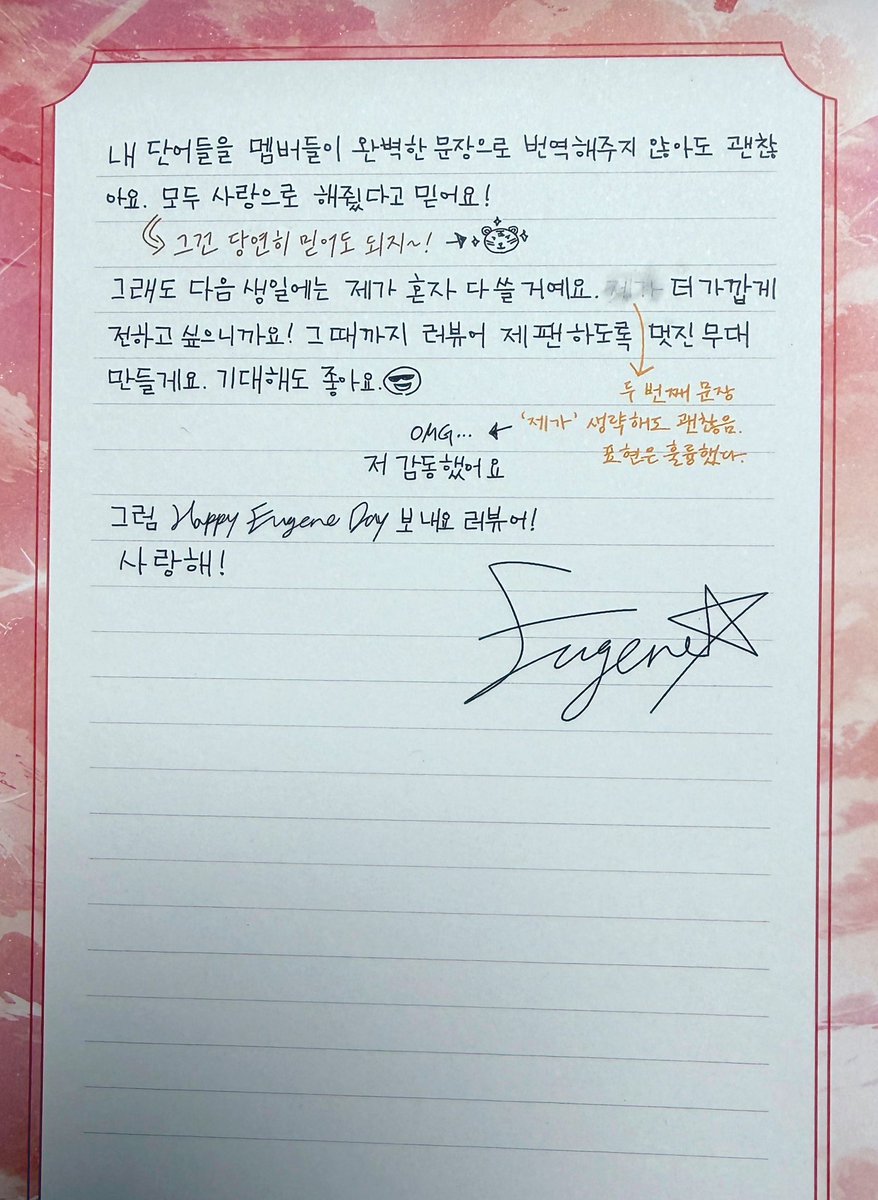 내 단어들을 멤버들이 완벽한 문장으로 번역해주지 않아도 괜찮
아요. 모두 사랑으로 해줬다고 믿어요!
그건 당연히 믿어도 되지~!
그래도 다음 생일에는 제가 혼자 다 쓸 거예요. 더 가깝게
전하고 싶으니까요! 그 때까지 러뷰어 제 팬 하도록 멋진 무대
만들게요. 기대해도 좋아요.
두 번째 문장
'제가' 생략해도 괜찮음.
표현은 훌륭했다.
OMG...
저 감동했어요
그럼 Happy Eugene Day 보내요 러뷰어!
사랑해!
Eugene